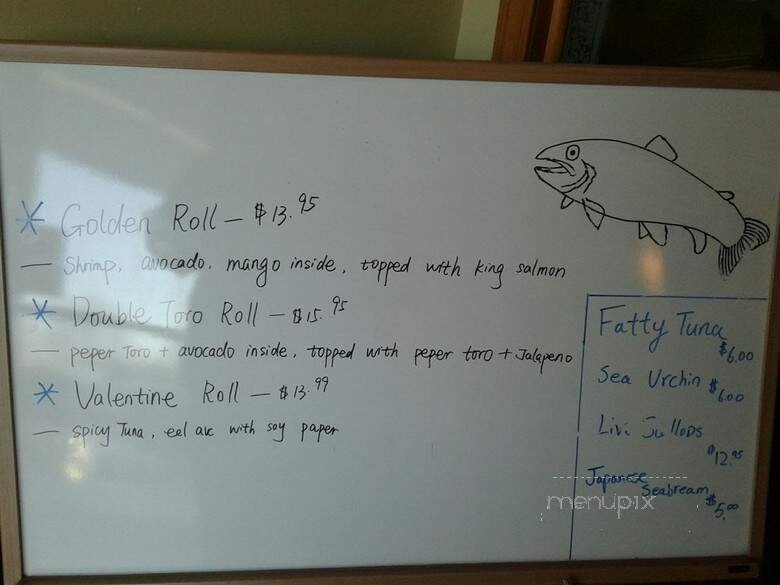 * Golden Roll — $13.95
— Shrimp, avocado, mango inside, topped with king salmon
* Double Toro Roll — $15.95
— peper Toro + avocado inside, topped with peper toro + Jalapeno
* Valentine Roll — $13.99
— spicy Tuna, eel avc with soy paper
Fatty Tuna
$6.00
Sea Urchin $6.00
$12.95
Japanese
Seabream $5.00
menupix